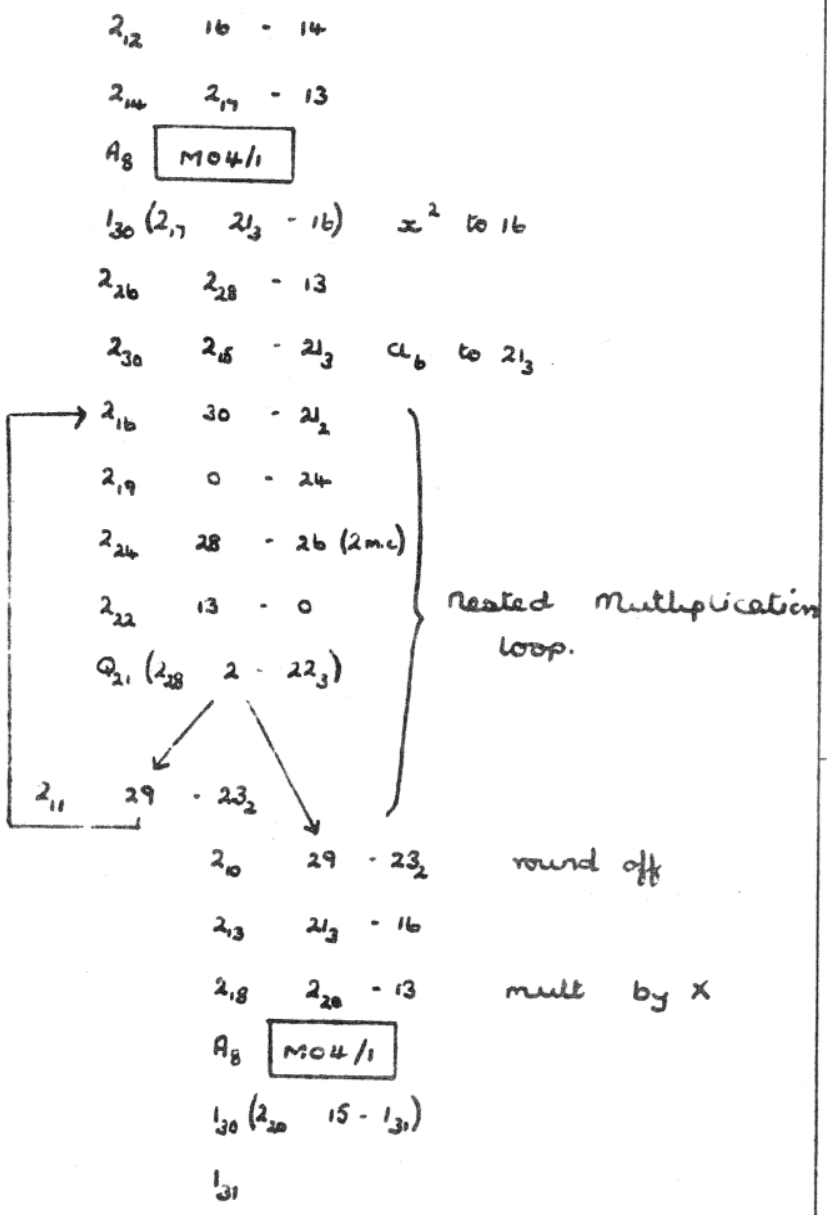 2₁₂ 16 - 14
2₁₄ 2₁₇ - 13
A₈ M04/1
1₃₀ (2₁₇ 21₃ - 16) x² to 16
2₂₆ 2₂₈ - 13
2₃₀ 2₁₅ - 21₃ a₆ to 21₃
2₁₆ 30 - 21₂
2₁₉ 0 - 24
2₂₄ 28 - 26 (2 m.c)
2₂₂ 13 - 0
nested Mutliplication
loop.
Q₂₁ (2₂₈ 2 - 22₃)
2₁₁ 29 - 23₂
2₁₀ 29 - 23₂ round off
2₁₃ 21₃ - 16
2₁₈ 2₂₀ - 13 mult by X
A₈ M04/1
1₃₀ (2₂₀ 15 - 1₃₁)
1₃₁